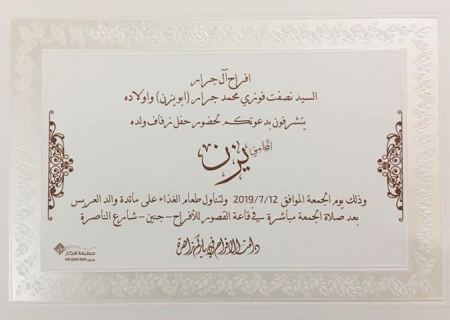 افراح آل جرار
السيد نصفت فوزي محمد جرار (ابو يزن) واولاده
يتشرفون بدعوتكم لحضور حفل زفاف ولده
المحامي
يزن
وذلك يوم الجمعة الموافق 2019/7/12 ولتناول طعام الغذاء على مائدة والد العريس
بعد صلاة الجمعة مباشرة في قاعة القصور للأفراح - جنين - شارع الناصرة
دامت الافراح في دياركم زاهرة
مطبعة افكار